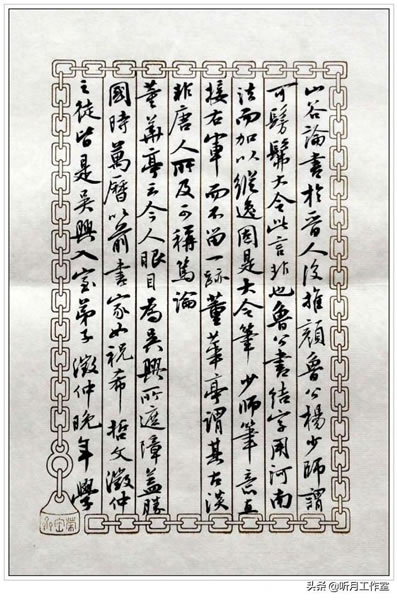 山谷論書於晉人後推顏魯公楊少師謂
可髣髴大令此言非也魯公書結字用河南
法而加以縱逸固是大令筆少師筆意直
接右軍而不留一跡董華亭謂其古淡
非唐人所及可稱篤論
董華亭云今人眼目為吳興所遮障蓋勝
國時萬曆以前書家如祝希哲文徵仲
之徒皆是吳興入室弟子徵仲晚年學
头条 @听月工作室